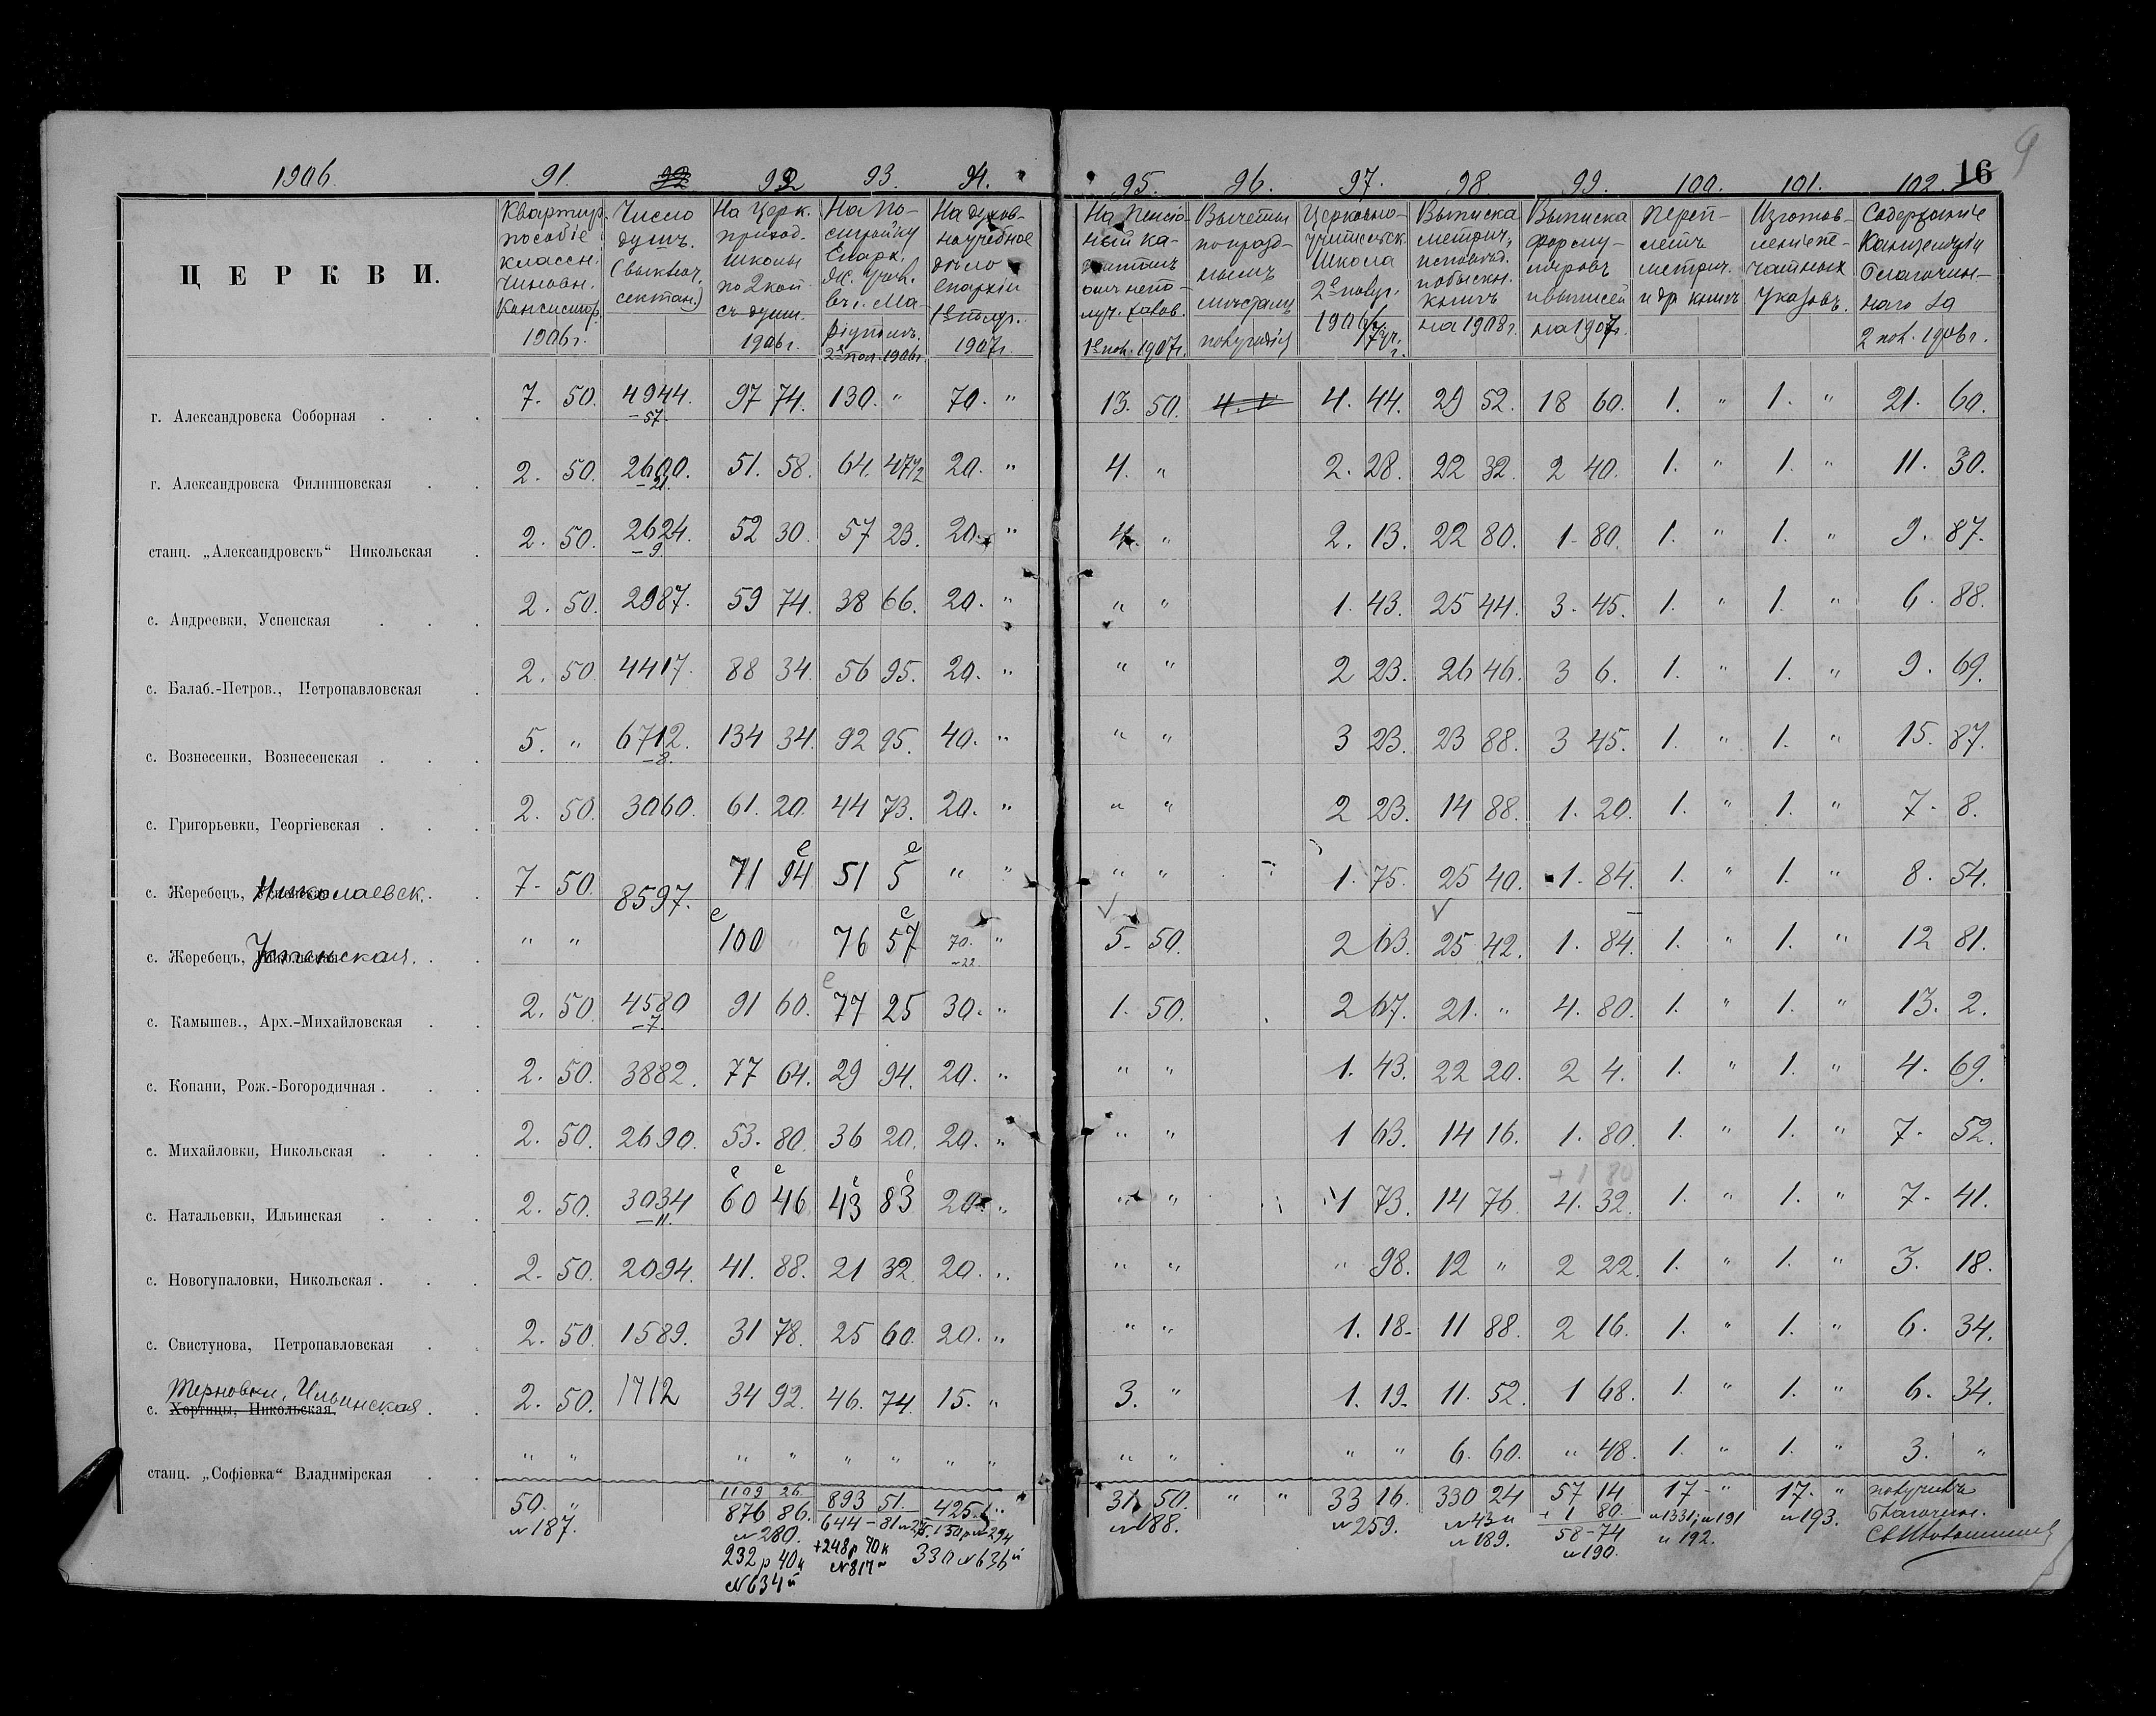 9
16
1906. 91. 92 92 93. 94. 95. 96. 97. 98. 99. 100. 101. 102.
ЦЕРКВИ.
Квартир. пособіе классн. чиновн. Консистор. 1906 г.
Число душъ. (выключ. сектан.)
На Церк. приход. школы по 2 коп. съ души. 1906 г.
На по-стройку Епарх. 2е пол. 1906 г.
На духов-научебное дѣло Епархіи 1е полуг. 1907 г.
На Пенсіо-ный ка- 1е пол. 1907 г.
Вычеты по празд-нымъ мѣстамъ
Церковно-учительск. Школа 2е полуг. 1906/7 уч. г.
Выписка метрич., исповѣд. и обыскн. книгъ на 1908 г.
Выписка формуляровъ и выписей на 1907 г.
Переп-летъ метрич. и др. книгъ
Изготов-леніе пе-чатныхъ указовъ.
Содержаніе Канцеляріи благочин-наго за 2 пол. 1906 г.
г. Александровска Соборная . . . 7. 50. 4944. 97 74. 130. " 70. " 13. 50. 4. 44. 29 52. 18 60. 1. " 1. " 21. 60.
-57.
г. Александровска Филипповская . . 2. 50. 2600. 51. 58. 64. 47½ 20. " 4. " 2. 28. 22 32. 2 40. 1. " 1. " 11. 30.
-21.
станц. „Александровскъ“ Никольская . 2. 50. 2624. 52 30. 57 23. 20. " 4. " 2. 13. 22 80. 1- 80. 1. " 1. " 9. 87.
-9
с. Андреевки, Успенская . . . 2. 50. 2987. 59 74. 38 66. 20. " " " 1. 43. 25 44. 3. 45. 1. " 1. " 6. 88.
с. Балаб.-Петров., Петропавловская . 2. 50. 4417. 88 34. 56 95. 20. " " " 2 23. 26 46. 3 6. 1. " 1. " 9. 69.
с. Вознесенки, Вознесенская . . . 5. " 6712. 134 34. 92 95. 40. " " " 3 23. 23 88. 3 45. 1. " 1. " 15. 87.
-8.
с. Григорьевки, Георгіевская . . . 2. 50. 3060. 61. 20. 44 73. 20. " " " 2 23. 14 88. 1. 20. 1. " 1. " 7. 8.
с. Жеребецъ, Николаевск. . . 7- 50. 8597. 71 94 51 5 " " " " 1. 75. 25 40. 1. 84. 1. " 1. " 8. 54.
с. Жеребецъ, Успенская. . . " " 100 " 76 57 70. " 5- 50. 2 63. 25 42. 1. 84. 1. " 1. " 12 81.
-22
с. Камышев., Арх.-Михайловская . . 2. 50. 4580 91 60. 77 25 30. " 1. 50. 2 67. 21. " 4. 80. 1. " 1. " 13. 2.
-7.
с. Копани, Рож.-Богородичная . . . 2. 50. 3882. 77 64. 29 94. 20. " " " 1. 43. 22 20. 2 4. 1. " 1. " 4. 69.
с. Михайловки, Никольская . . . 2. 50. 2690. 53. 80. 36 20. 20. " " " 1 63. 14 16. 1. 80. 1. " 1. " 7. 52.
+ 1 80
с. Натальевки, Ильинская . . . 2. 50. 3034 60 46 43 83 20. " " " 1 73. 14 76 4. 32. 1. " 1. " 7- 41.
-11.
с. Новогупаловки, Никольская . . . 2. 50. 2094. 41. 88. 21 32 20. " " " " 98. 12 " 2 22. 1. " 1. " 3. 18.
с. Свистунова, Петропавловская . . 2. 50. 1589. 31 78. 25 60. 20. " " " 1. 18- 11 88. 2 16. 1. " 1. " 6. 34.
Терновки, Ильинская
с. Хортицы, Никольская . . 2. 50. 1712 34 92. 46. 74. 15. " 3. " 1. 19. 11. 52. 1 68. 1. " 1. " 6. 34.
станц. „Софіевка“ Владимірская . . " " " " " " " " " " " " 6. 60. " 48. 1. " 1. " 3. "
1109 26
50. " 876 86. 893 51. 425. " 31. 50. " " 33 16. 330 24 57 14 17- " 17. " получилъ
№187. №280. 644-81 №188. №259. №43 и №189. + 1 80. №1331; №191 и 192. №193. Благочин.
232 р 40 к +248 р 70 к 330 №636й 58-74
№634й №817й №190.